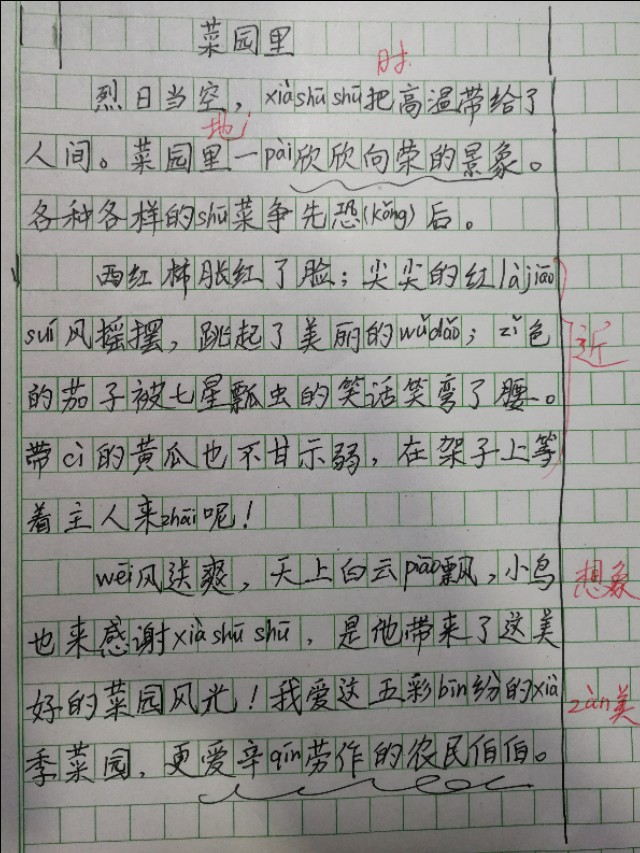 菜园里
时
烈日当空，xiàshūshū把高温带给了
地
人间。菜园里一pài欣欣向荣的景象。
各种各样的shū菜争先恐(kǒng)后。
西红柿胀红了脸；尖尖的红làjiāo
suí风摇摆，跳起了美丽的wǔdǎo；zǐ色
近
的茄子被七星瓢虫的笑话笑弯了腰。
带cì的黄瓜也不甘示弱，在架子上等
着主人来zhāi呢！
wēi风送爽，天上白云piāo飘，小鸟
想象
也来感谢xiàshūshū，是他带来了这美
好的菜园风光！我爱这五彩bīn纷的xià
zàn美
季菜园，更爱辛qín劳作的农民伯伯。